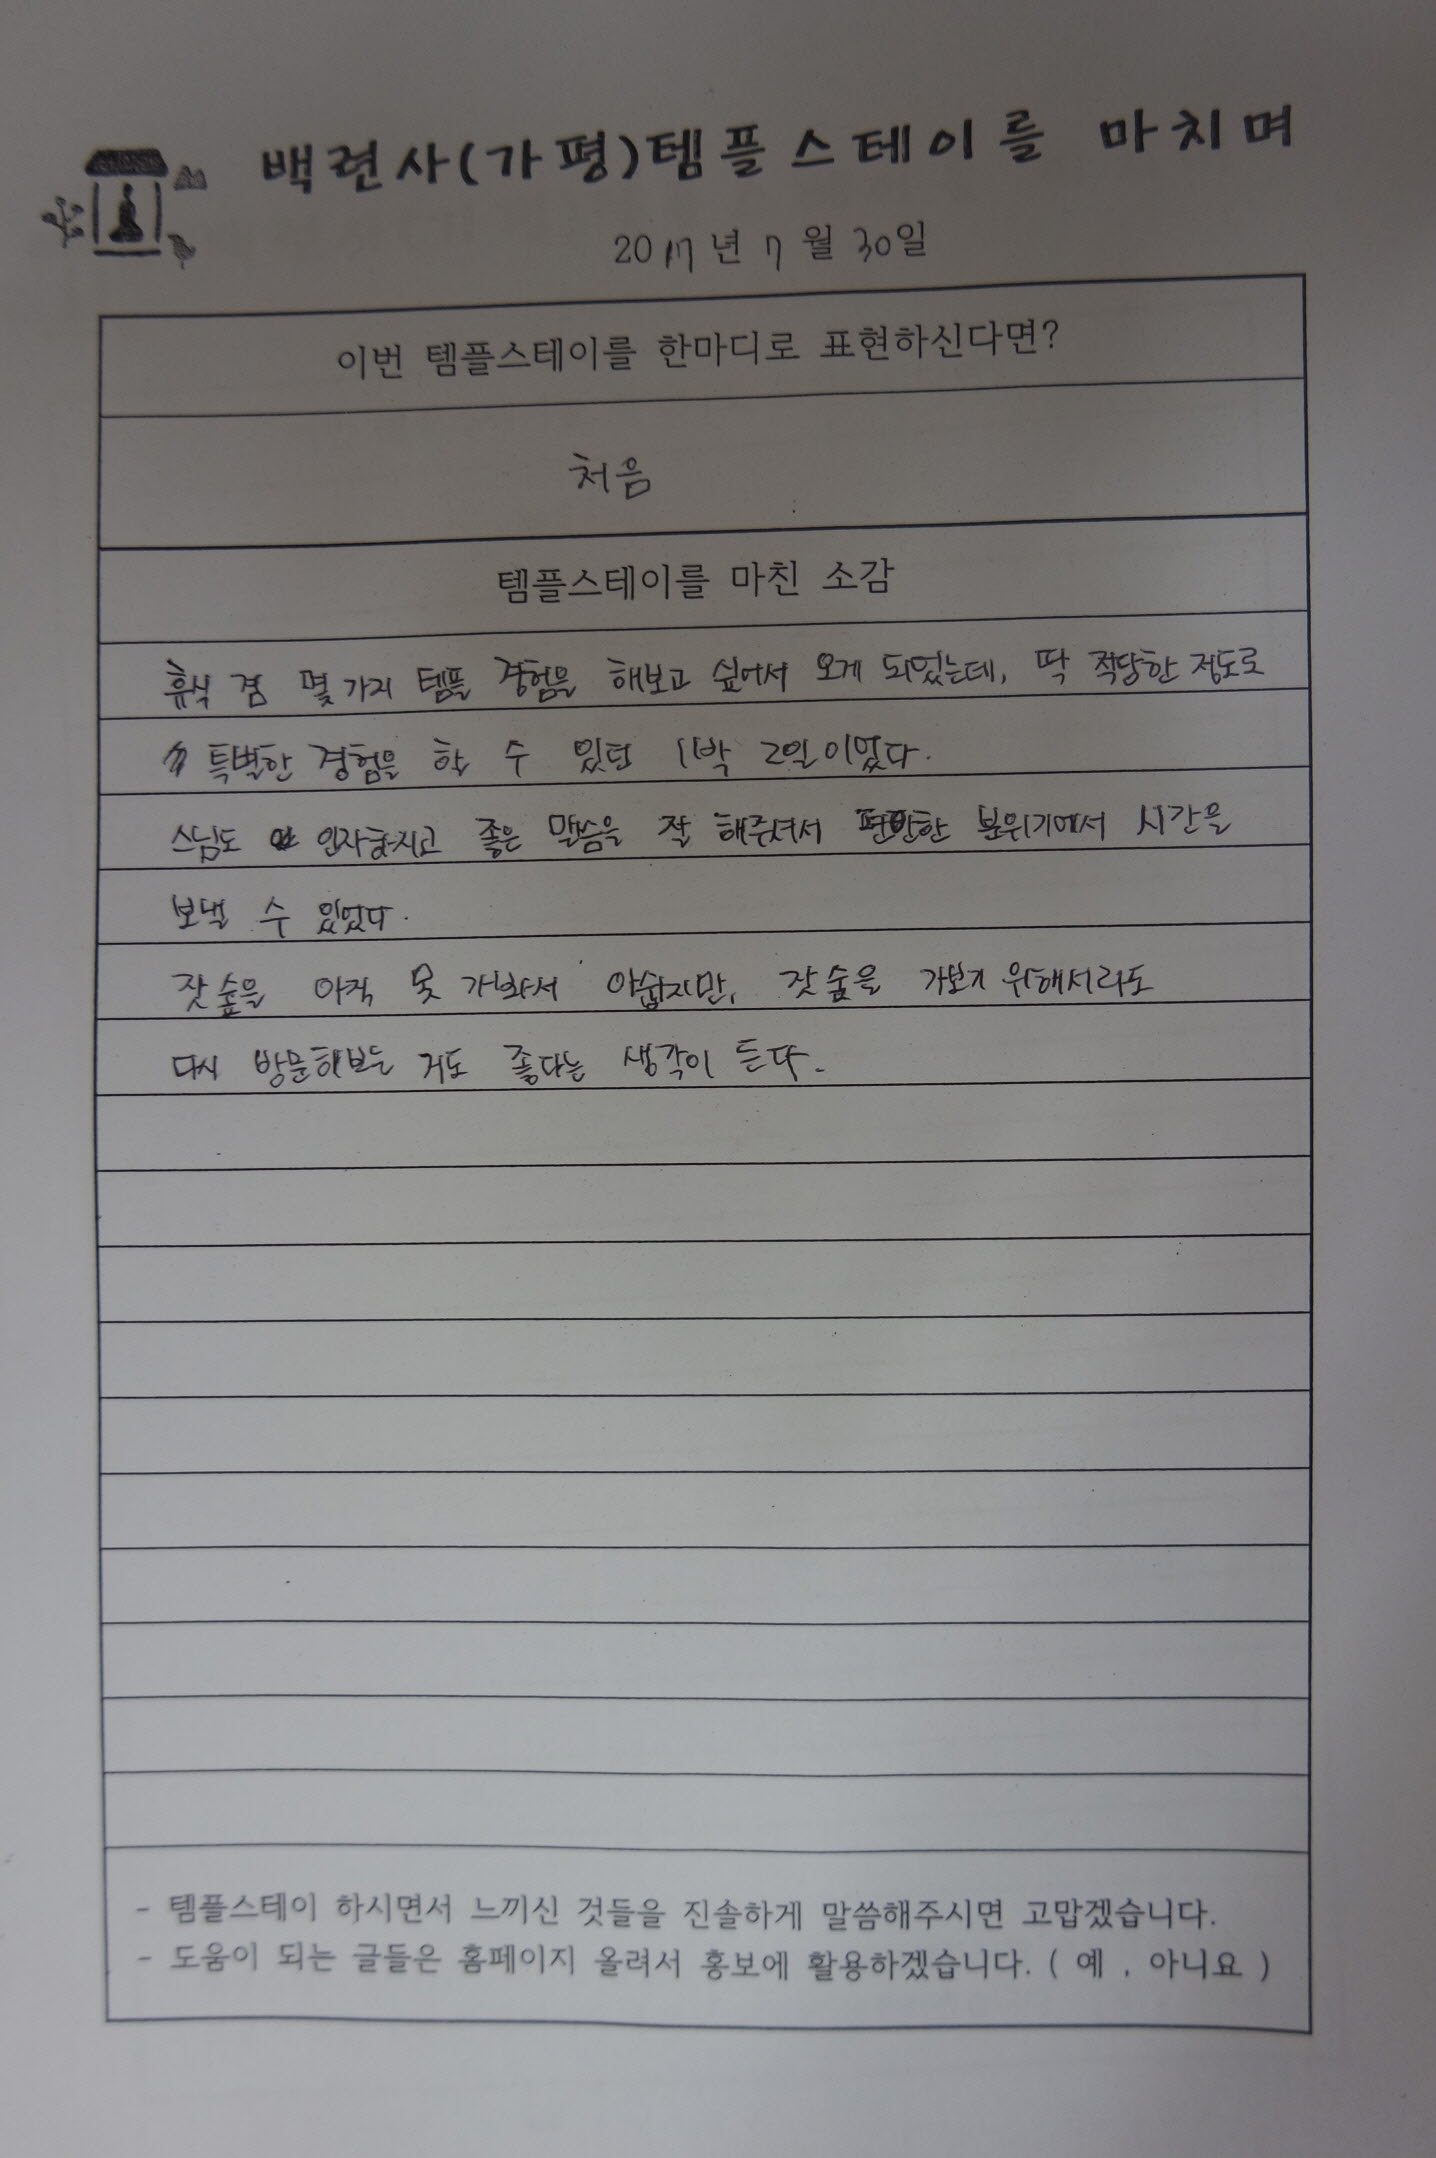 백련사(가평)템플스테이를 마치며
2017년 7월 30일
이번 템플스테이를 한마디로 표현하신다면?
처음
템플스테이를 마친 소감
휴식 겸 몇가지 템플 경험을 해보고 싶어서 오게 되었는데, 딱 적당한 정도로
특별한 경험을 할 수 있던 1박 2일이었다.
스님도 인자하시고 좋은 말씀을 잘 해주셔서 편안한 분위기에서 시간을
보낼 수 있었다.
잣숲을 아직 못 가봐서 아쉽지만, 잣숲을 가보기 위해서라도
다시 방문해보는 거도 좋다는 생각이 든다.
- 템플스테이 하시면서 느끼신 것들을 진솔하게 말씀해주시면 고맙겠습니다.
- 도움이 되는 글들은 홈페이지 올려서 홍보에 활용하겠습니다. ( 예 , 아니요 )